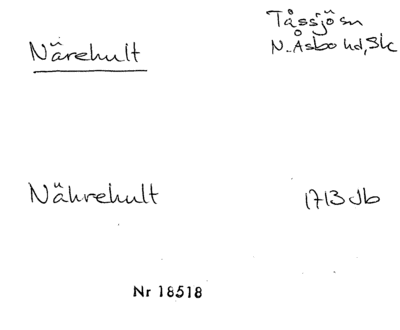 Närehult
Tåssjösn
N. Åsbo hd, Sk
Nährehult
1713 Jb
Nr 18518